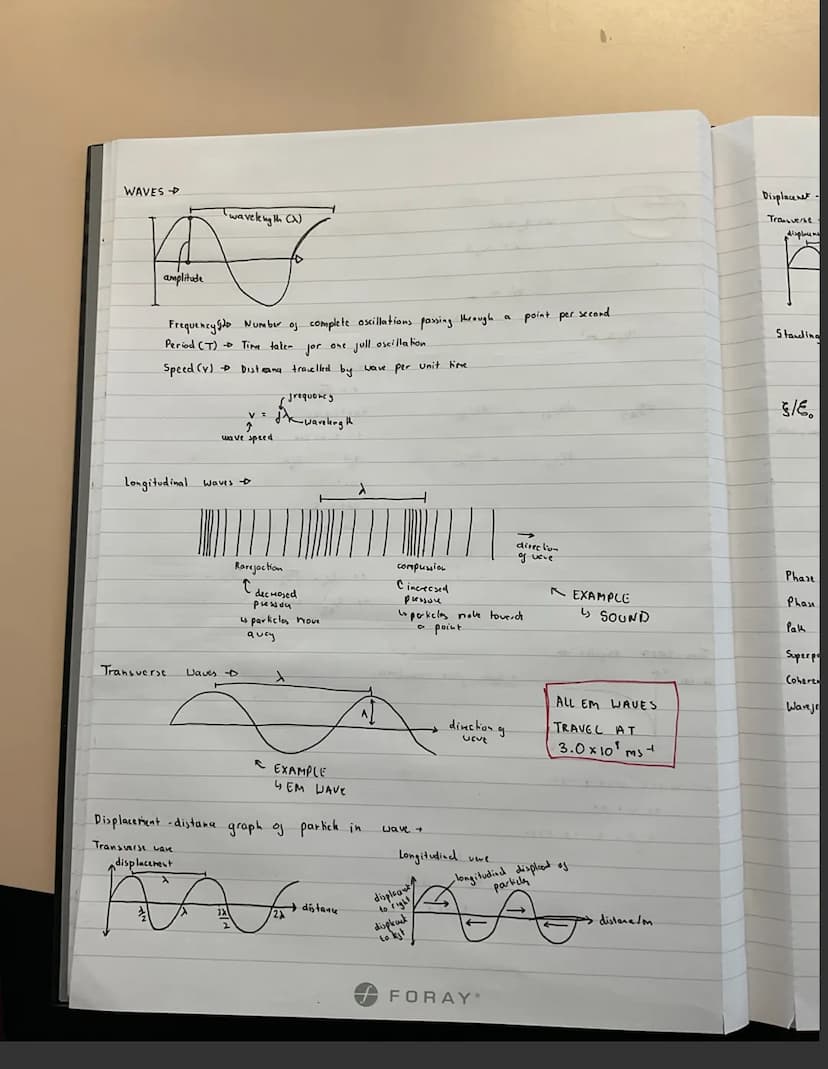 WAVES →
wavelength (λ)
amplitude
Frequency(f)→ Number of complete oscillations passing through a point per second
Period (T) → Time taken for one full oscillation
Speed (v) → Distance travelled by wave per unit time
frequency
v = fλ
wavelength
wave speed
Longitudinal waves →
λ
direction
of wave
Rarefaction
compression
decreased
pressure
↳ particles move
away
increased
pressure
↳ particles move towards
a point
EXAMPLE
↳ SOUND
Transverse waves →
λ
A
direction of
wave
EXAMPLE
↳ EM WAVE
ALL EM WAVES
TRAVEL AT
3.0 x 10⁸ ms⁻¹
Displacement - distance graph of particle in wave →
Transverse wave
displacement
λ
λ/2
λ
3λ/2
2λ
distance
Longitudinal wave
longitudinal displacement of
particles
displacement
to right
displacement
to left
distance/m
FORAY
Displacement -
Transverse
Standing
ξ/ξ₀
Phase
Phase
Path
Superp
Coheren
Wavefr